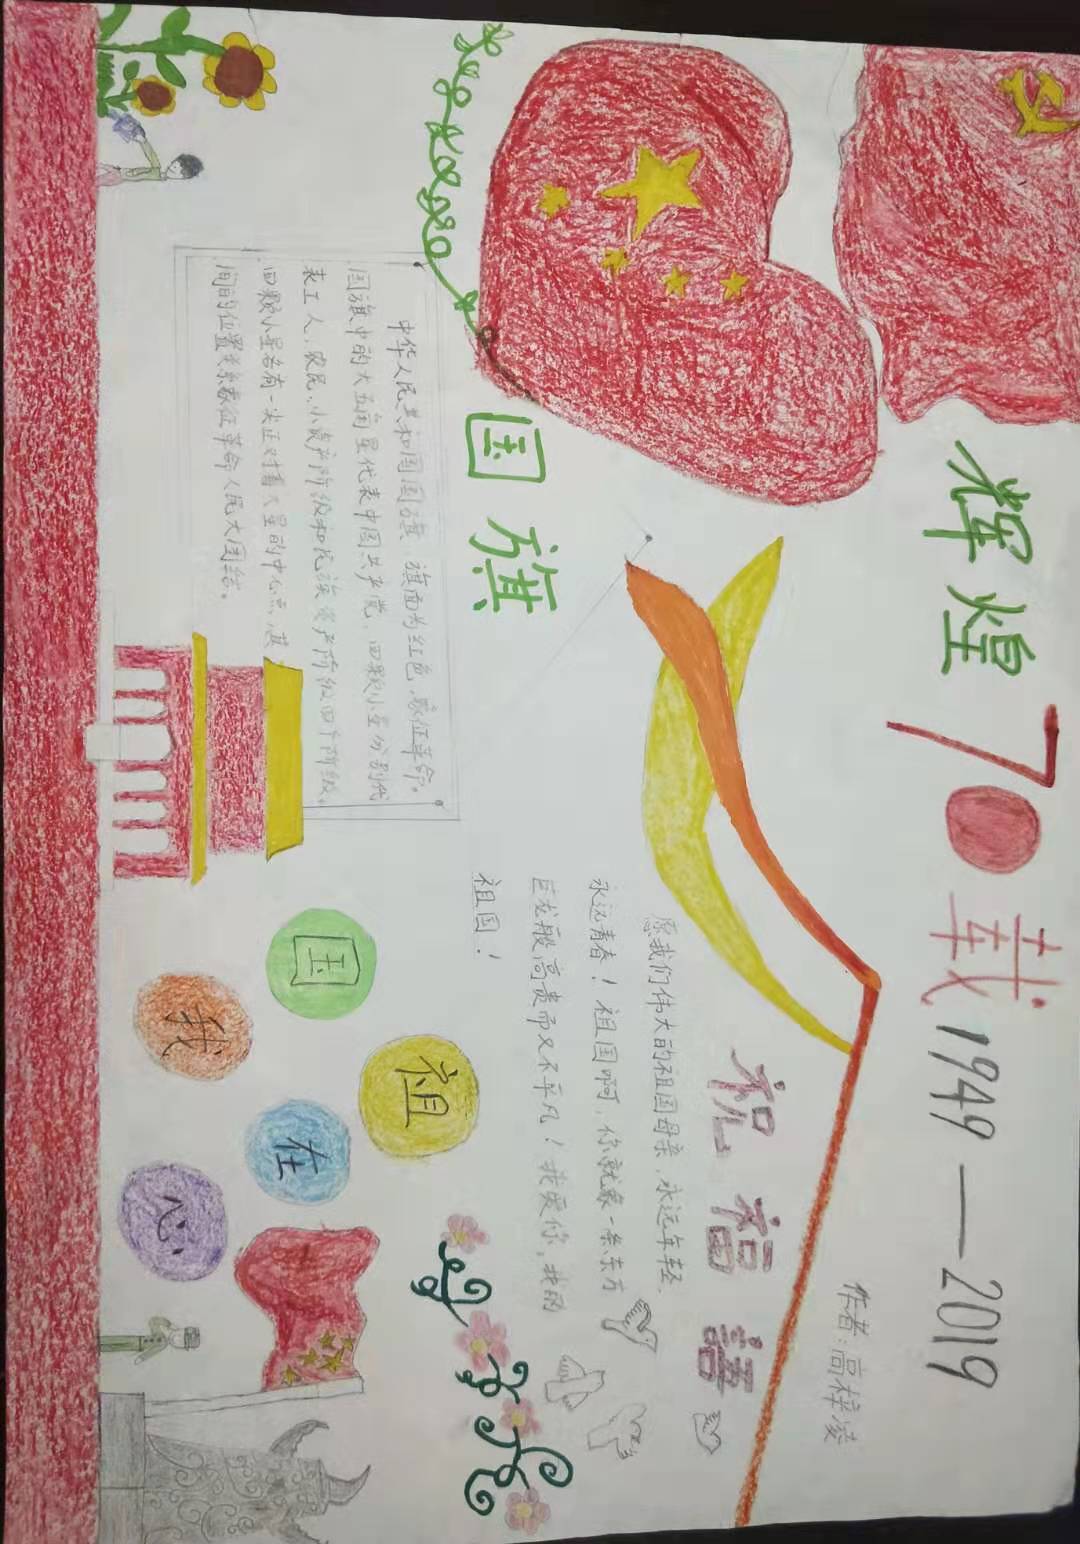 辉煌70载1949—2019
作者:高梓凌
国旗
中华人民共和国国旗,旗面为红色,象征革命。
国旗中的大五角星代表中国共产党,四颗小星分别代
表工人,农民,小资产阶级和民族资产阶级四个阶级。
四颗小星各有一尖正对着大星的中心点,其
间的位置关系象征革命人民大团结。
祝福语
愿我们伟大的祖国母亲,永远年轻,
永远青春!祖国啊,你就象一条东方
巨龙般高贵而又不平凡!我爱你,我的
祖国!
祖国在我心